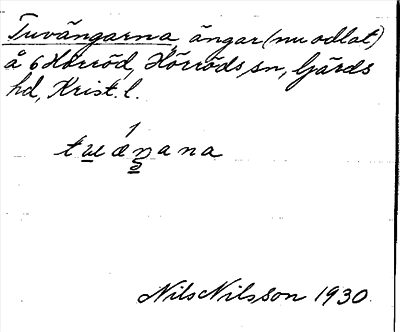 Tuvängarna, ängar (nu odlat)
å 6 Hörröd, Hörröds sn, Gärds
hd, Krist. l.
Nils Nilsson 1930.